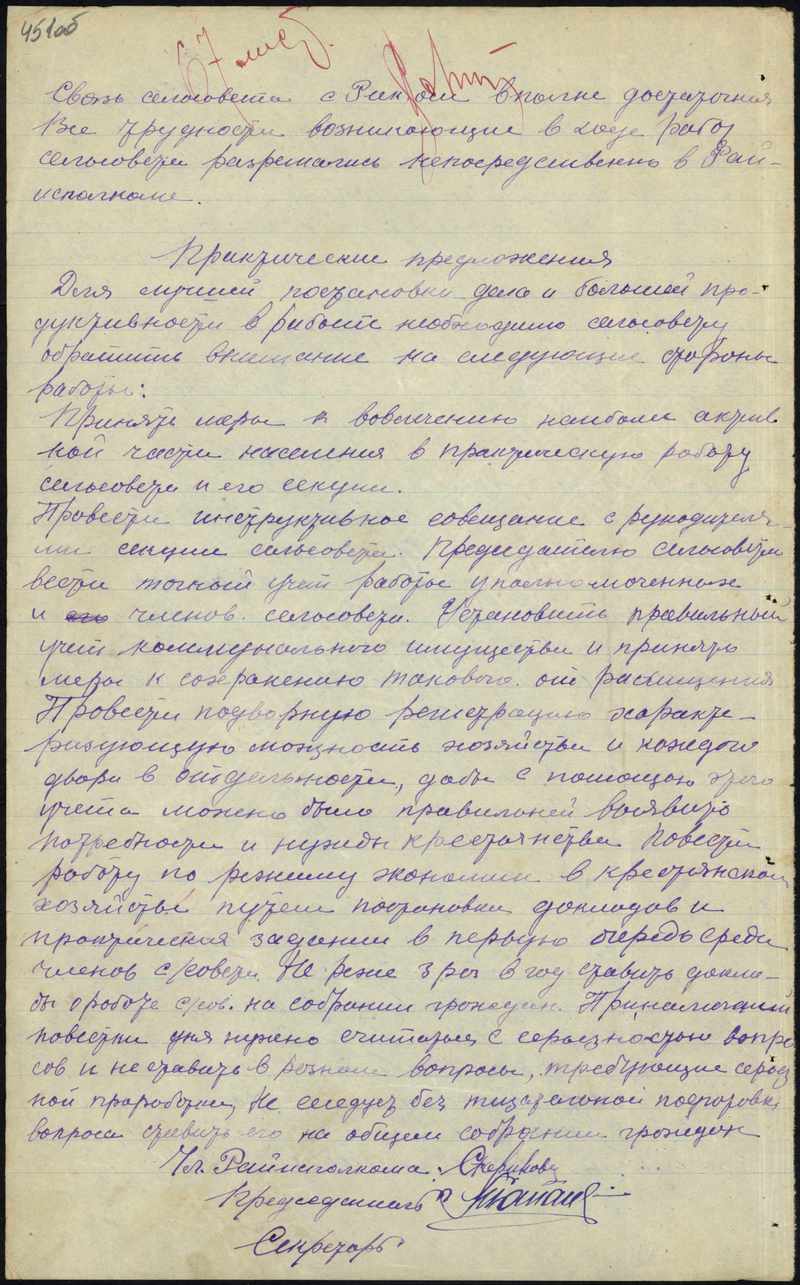 451об
67 лист.
Связь сельсовета с Риком вполне достаточная
Все трудности возникающие в ходе работ
сельсовета разрешались непосредственно в Рай-
исполкоме.
Практические предложения
Для лучшей постановки дела и большей про-
дуктивности в работе необходимо сельсовету
обратить внимание на следующие стороны
работы:
Принять меры к вовлечению наиболи актив
ной части населения в практическую работу
сельсовета и его секции.
Провести инструктивное совещание с руководителя-
ми секции сельсовета. Председателю сельсовета
вести точный учет работы уполномоченных
и членов сельсовета. Установить правильный
учет коммунального имущества и принять
меры к сохранению такового от расхищения
Провести подворную регистрацию характе-
ризующую мощность хозяйства и каждого
двора в отдельности, дабы с помощью этого
учета можно было правильней выявить
потребности и нужды крестьянства Повести
работу по режиму экономии в крестьянском
хозяйстве путем постановки докладов и
практические задании в первую очередь среди
членов с/совета. Не реже 3 раз в год ставить докла-
ды о работе с/сов. на собрании граждан.
повестки дня нужно считаться с серьезностью вопро
сов и не ставить в разном вопросы, требующие серьез
ной проработки, Не следует без тщательной подготовки
вопроса ставить его на общем собрании граждан
Чл. Райисполкома:
Председатель
Секретарь